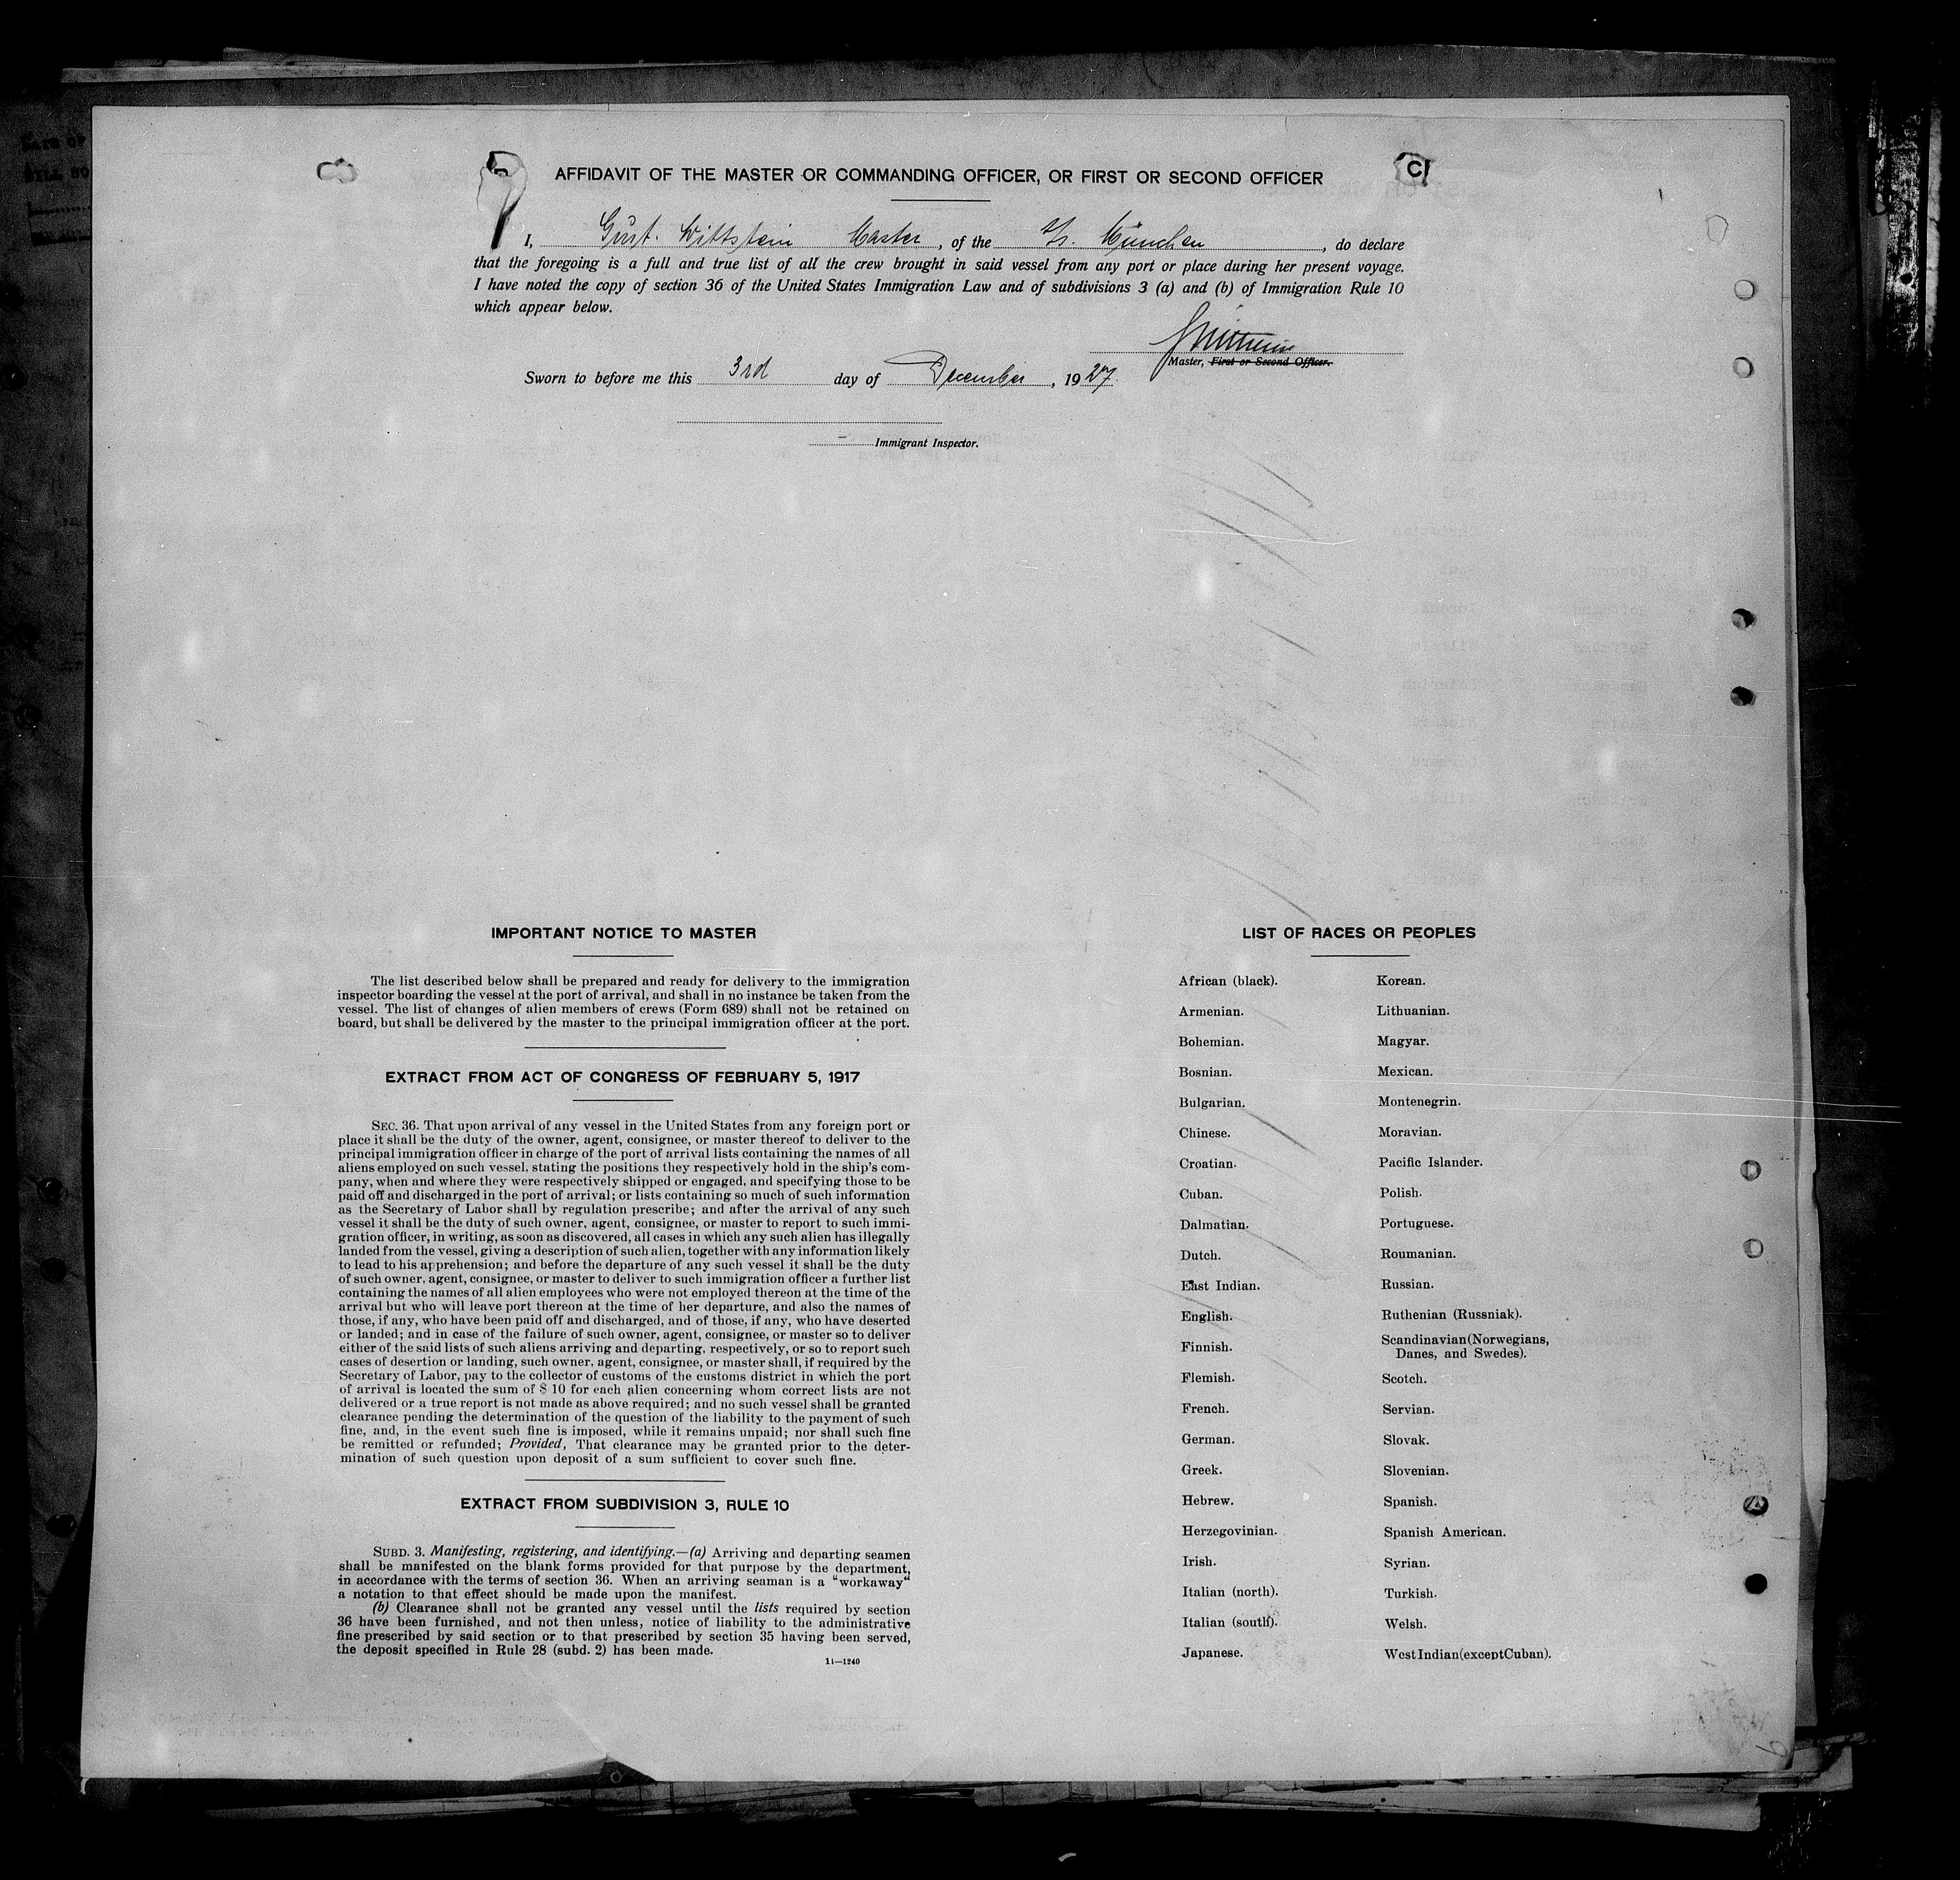 AFFIDAVIT OF THE MASTER OR COMMANDING OFFICER, OR FIRST OR SECOND OFFICER
I, Gust. Wittstein Master, of the München, do declare
that the foregoing is a full and true list of all the crew brought in said vessel from any port or place during her present voyage.
I have noted the copy of section 36 of the United States Immigration Law and of subdivisions 3 (a) and (b) of Immigration Rule 10
which appear below.
Master, First or Second Officer.
Sworn to before me this 3rd day of December, 1927.
Immigrant Inspector.
IMPORTANT NOTICE TO MASTER
The list described below shall be prepared and ready for delivery to the immigration
inspector boarding the vessel at the port of arrival, and shall in no instance be taken from the
vessel. The list of changes of alien members of crews (Form 689) shall not be retained on
board, but shall be delivered by the master to the principal immigration officer at the port.
EXTRACT FROM ACT OF CONGRESS OF FEBRUARY 5, 1917
SEC. 36. That upon arrival of any vessel in the United States from any foreign port or
place it shall be the duty of the owner, agent, consignee, or master thereof to deliver to the
principal immigration officer in charge of the port of arrival lists containing the names of all
aliens employed on such vessel, stating the positions they respectively hold in the ship's com-
pany, when and where they were respectively shipped or engaged, and specifying those to be
paid off and discharged in the port of arrival; or lists containing so much of such information
as the Secretary of Labor shall by regulation prescribe; and after the arrival of any such
vessel it shall be the duty of such owner, agent, consignee, or master to report to such immi-
gration officer, in writing, as soon as discovered, all cases in which any such alien has illegally
landed from the vessel, giving a description of such alien, together with any information likely
to lead to his apprehension; and before the departure of any such vessel it shall be the duty
of such owner, agent, consignee, or master to deliver to such immigration officer a further list
containing the names of all alien employees who were not employed thereon at the time of the
arrival but who will leave port thereon at the time of her departure, and also the names of
those, if any, who have been paid off and discharged, and of those, if any, who have deserted
or landed; and in case of the failure of such owner, agent, consignee, or master so to deliver
either of the said lists of such aliens arriving and departing, respectively, or so to report such
cases of desertion or landing, such owner, agent, consignee, or master shall, if required by the
Secretary of Labor, pay to the collector of customs of the customs district in which the port
of arrival is located the sum of $ 10 for each alien concerning whom correct lists are not
delivered or a true report is not made as above required; and no such vessel shall be granted
clearance pending the determination of the question of the liability to the payment of such
fine, and, in the event such fine is imposed, while it remains unpaid; nor shall such fine
be remitted or refunded; Provided, That clearance may be granted prior to the deter-
mination of such question upon deposit of a sum sufficient to cover such fine.
EXTRACT FROM SUBDIVISION 3, RULE 10
SUBD. 3. Manifesting, registering, and identifying.—(a) Arriving and departing seamen
shall be manifested on the blank forms provided for that purpose by the department,
in accordance with the terms of section 36. When an arriving seaman is a "workaway"
a notation to that effect should be made upon the manifest.
(b) Clearance shall not be granted any vessel until the lists required by section
36 have been furnished, and not then unless, notice of liability to the administrative
fine prescribed by said section or to that prescribed by section 35 having been served,
the deposit specified in Rule 28 (subd. 2) has been made.
11—1240
LIST OF RACES OR PEOPLES
African (black).
Armenian.
Bohemian.
Bosnian.
Bulgarian.
Chinese.
Croatian.
Cuban.
Dalmatian.
Dutch.
East Indian.
English.
Finnish.
Flemish.
French.
German.
Greek.
Hebrew.
Herzegovinian.
Irish.
Italian (north).
Italian (south).
Japanese.
Korean.
Lithuanian.
Magyar.
Mexican.
Montenegrin.
Moravian.
Pacific Islander.
Polish.
Portuguese.
Roumanian.
Russian.
Ruthenian (Russniak).
Scandinavian (Norwegians,
Danes, and Swedes).
Scotch.
Servian.
Slovak.
Slovenian.
Spanish.
Spanish American.
Syrian.
Turkish.
Welsh.
West Indian (except Cuban).